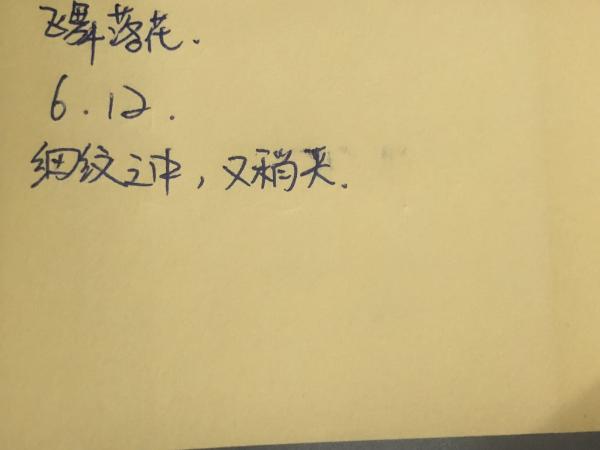 飞舞落花.
6.12.
细纹之中,又稍关.